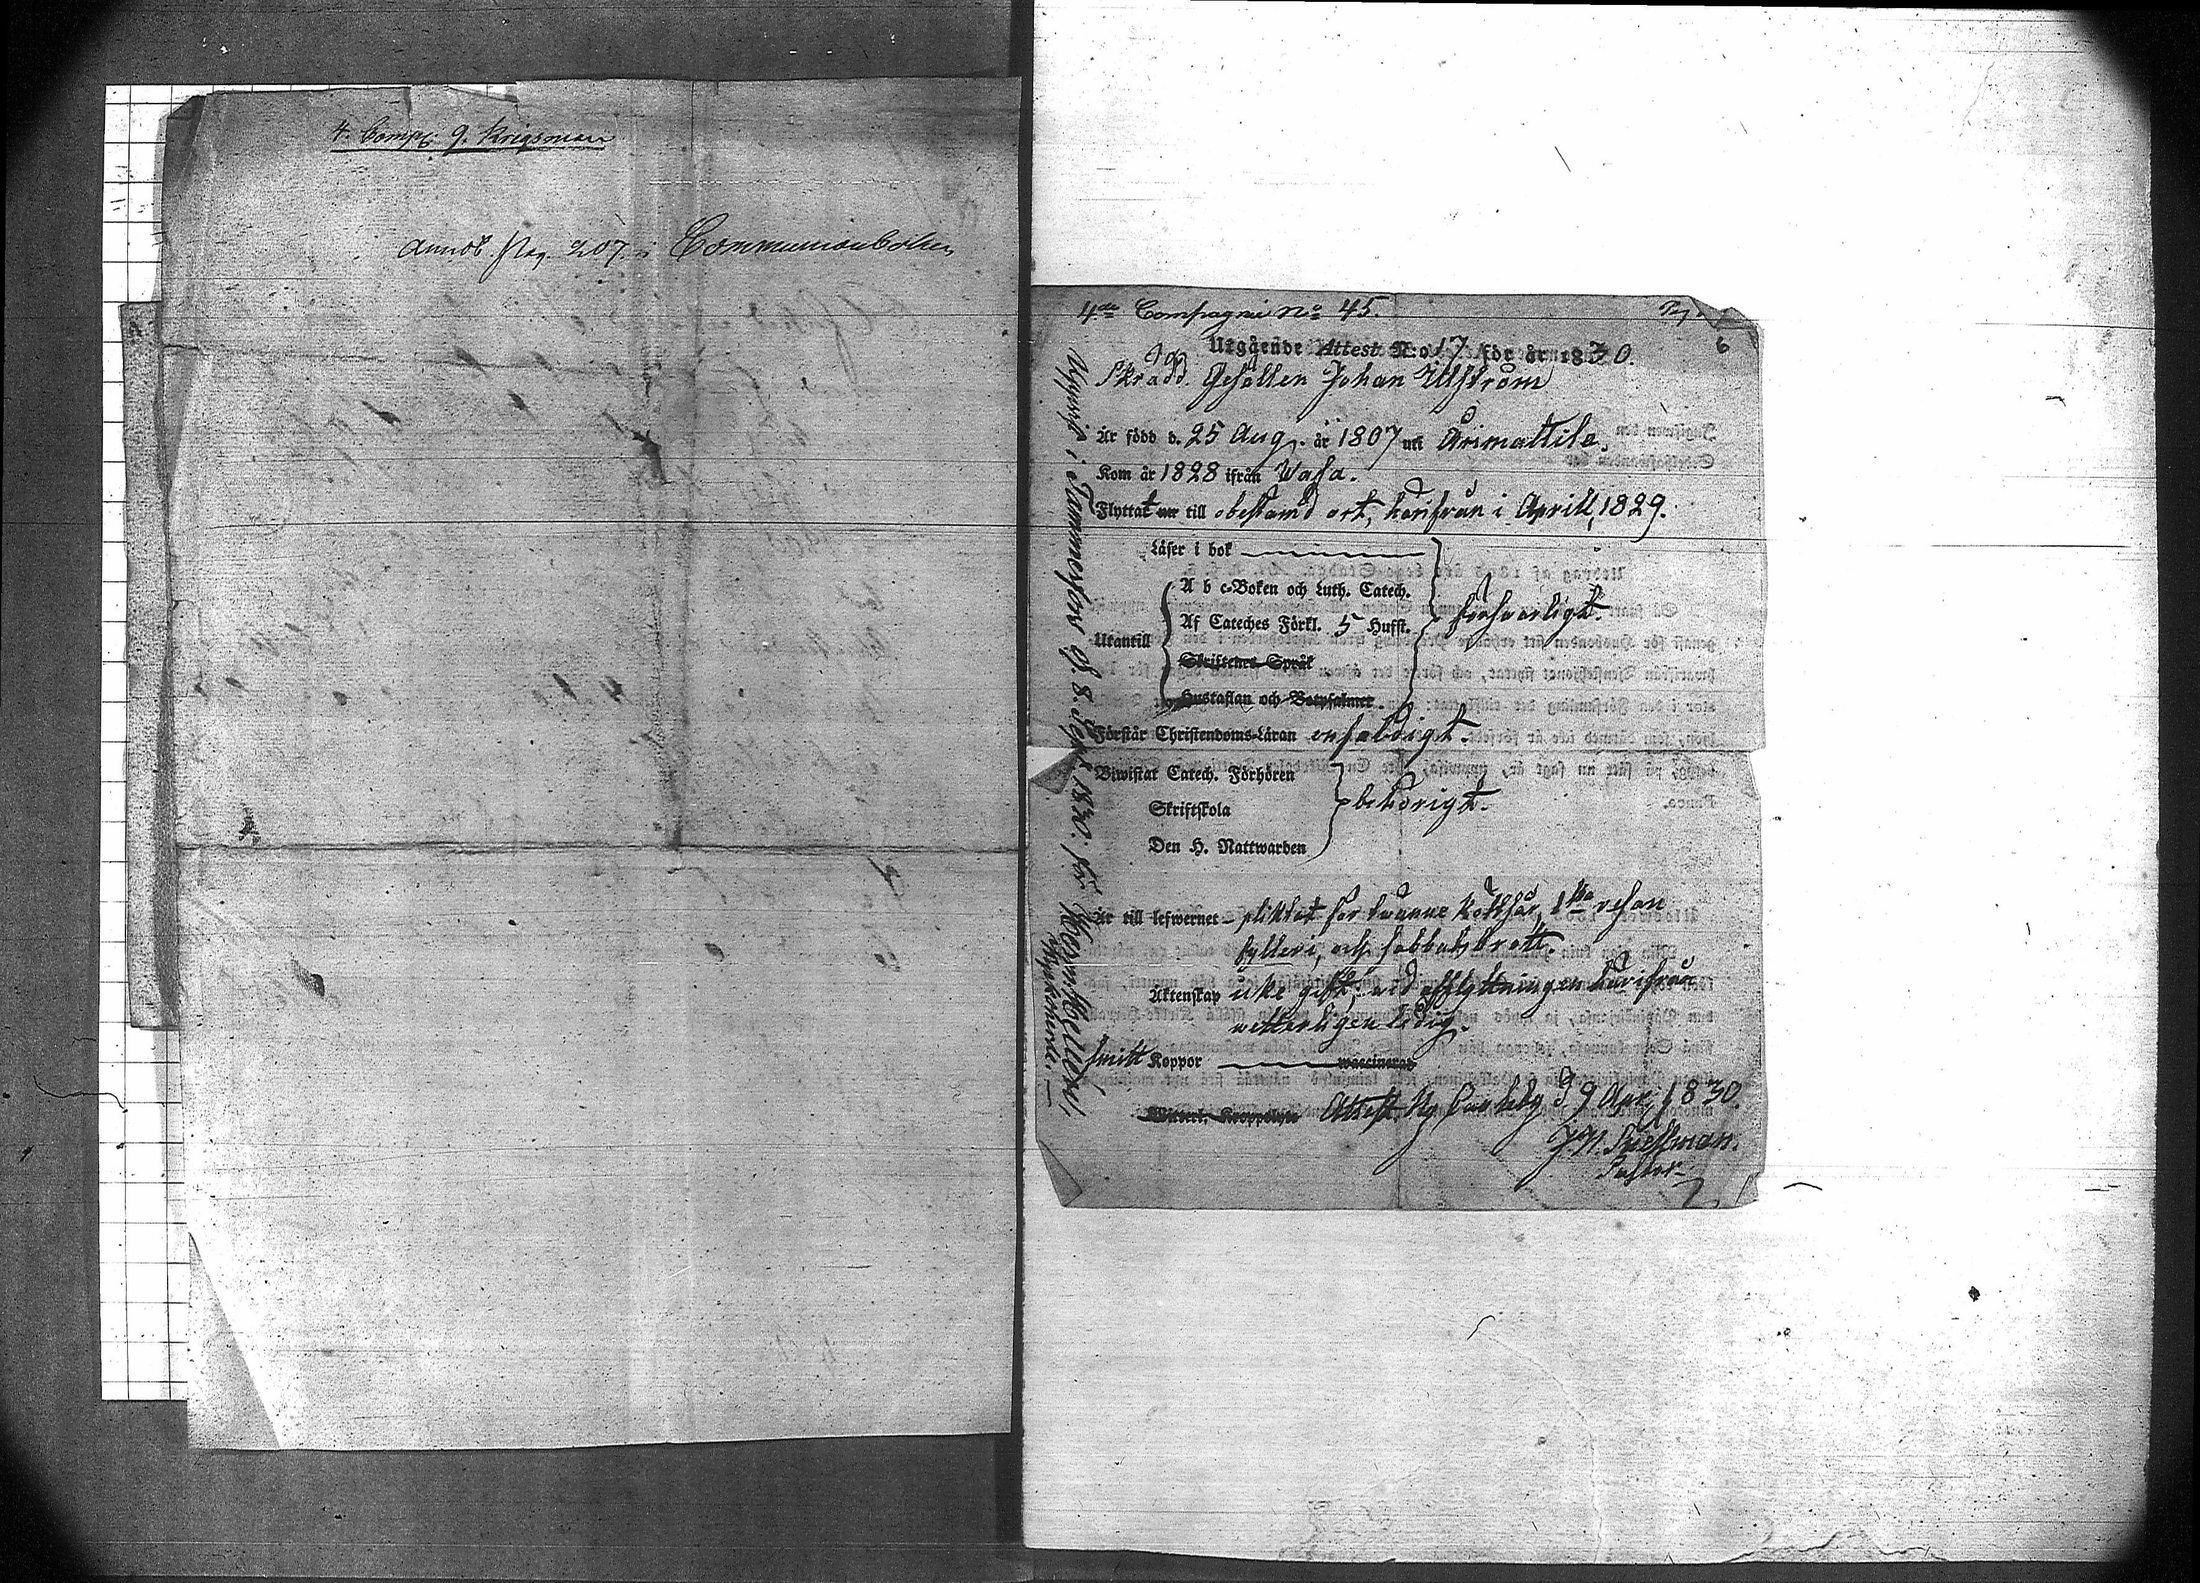 4. Comp. 9. Krigsman
annot. pag. 207. i Communionboken
4de Compagnie No 45.
6
Utgående Attest N:o 17 för år 1830.
Skradd. Gesällen Johan Ulfström
Är född d. 25 Aug. år 1807 uti Årimattila.
Kom år 1828 ifrån Vasa.
Flyttat till obestämd ort, härifrån i Aprill 1829.
Läser i bok
A b c-Boken och Luth. Catech.
försvarligt.
Utantill
Af Cateches Förkl. 5 Hufst.
Skriftenes Språk
Hustaflan och Botpsalmer.
Förstår Christendoms-Läran enfaldigt.
Biwistat Catech. Förhören
Skriftskola
behörigt.
Den H. Nattwarden
Är till lefwernet pliktat för 1sta resan
fylleri, och sabbatsbrott.
Äktenskap icke gift, vid afflyttningen härifrån
vetterligen ledig.
haft Koppor waccinerad
Witterl. Kroppslyte Attest. Ny Carleby d 9 Apr. 1830.
Pastor
Uppvist i Tammerfors d. 8. Sept 1830. för